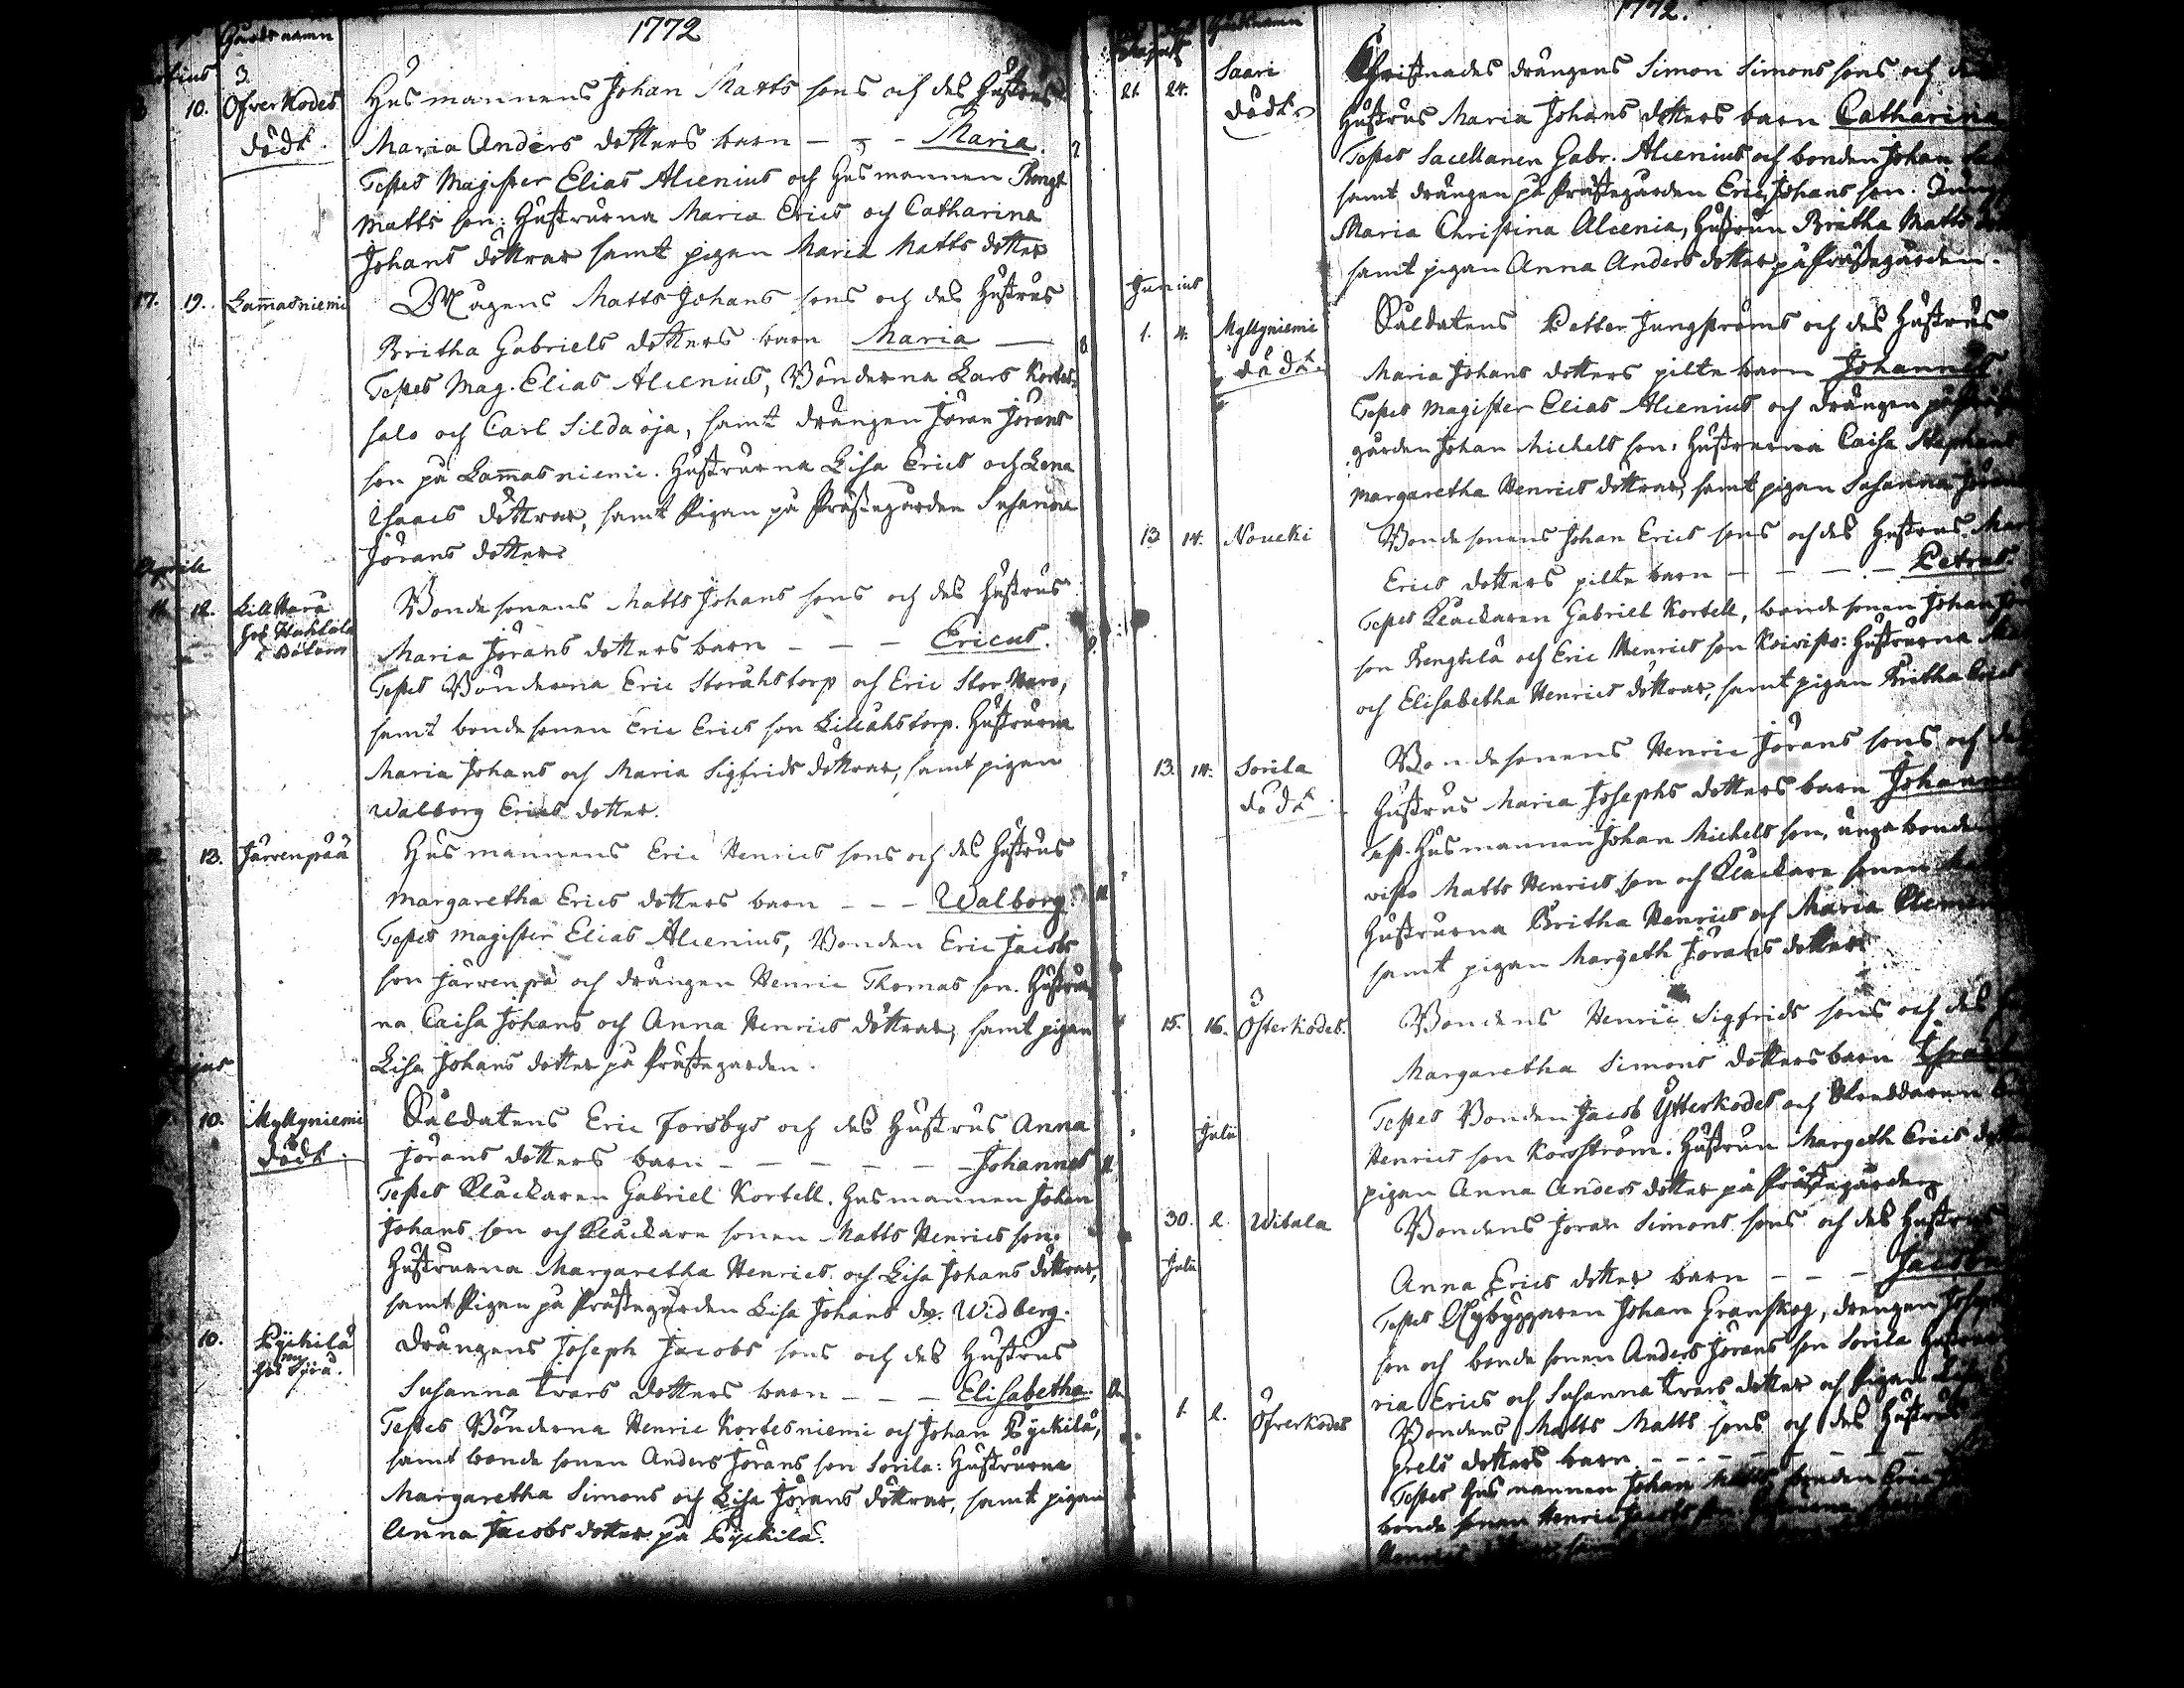 1772
Gårds namn
10. Öfwerkodes Husmannens Johan Matts sons och des Hustrus
dödt. Maria Anders dotters barn - - - Maria.
Testes Magister Elias Alcenius och Husmannen Bengt
Matts son: Hustrurna Maria Erics och Catharina
Johans döttrar samt pigan Maria Matts dotter
17. 19. Lam̄asniemi Mågens Matts Johans sons och des Hustrus
Britha Gabriels dotters barn Maria
Testes Mag. Elias Alcenius, Bönderna Lars Kortes
salo och Carl Silda oja, samt drängen Jöran Jörans
son på Lam̄asniemi. Hustrurna Lisa Erics och Lena
Isaacs döttrar, samt Pigan på Prästegården Susanna
Jörans dotter
Aprill
12. Bondesonens Matts Johans sons och des Hustrus
Maria Jörans dotters barn - - - Ericus.
Testes Bönderna Eric Storåhstorp och Eric Stor Wara,
samt bondesonen Eric Erics son Lillåhstorp. Hustrurna
Maria Johans och Maria Sigfrids döttrar, samt pigan
Walborg Erics dotter.
13. Järvenpää Husmannens Eric Henrics sons och des Hustrus
Margaretha Erics dotters barn - - - Walborg
Testes magister Elias Alcenius, Bonden Eric Jacobs
son Järvenpä och drängen Henric Thomas son. Hustrur
na Caisa Johans och Anna Henrics döttrar, samt pigan
Lisa Johans dotter på Prästegården.
10. Myllyniemi Såldatens Eric Forsbys och des Hustrus Anna
dödt. Jörans dotters barn - - - - - Johannes
Testes Klåckaren Gabriel Kortell. Husmannen Johan
Johans son och Klåckare sonen Matts Henrics son.
Hustrurna Margaretha Henrics och Lisa Johans döttrar,
samt Pigan på Prästegården Lisa Johans dr. Widberg.
10. Pyckilä Drängens Joseph Jacobs sons och des Hustrus
Susanna Ivars dotters barn - - - Elisabetha.
Testes Bönderna Henric Kortesniemi och Johan Pyckilä,
samt bonde sonen Anders Jörans son Sorila: Hustrurna
Margaretha Simons och Lisa Jörans döttrar, samt pigan
Anna Jacobs dotter på Pyckilä.
1772.
Gårdsnamn
21. 24. Saari Christnades drängens Simon Simons sons och
dödt Hustrus Maria Johans dotters barn Catharina
Testes Sacellanen Gabr. Alcenius och bonden Johan
samt drängen på Prästegården Eric Johans son.
Maria Christina Alcenia, Hustrun Britha Matts
samt pigan Anna Anders dotter på Prästegården.
Junius
1. 4. Myllyniemi Såldatens Petter Jungströms och des Hustrus
dödt. Maria Johans dotters pilte barn Johannes
Testes magister Elias Alcenius och drängen på
gården Johan Michels son: Hustrurna Caisa Stephans
Margaretha Henrics döttrar, samt pigan Susanna
13 14. Noucki Bondesonens Johan Erics sons och des Hustrus
Erics dotters pilte barn - - - - Petrus.
Testes Klåckaren Gabriel Kortell, bonde sonen Johan
son Bengtilä och Eric Henrics son Koivisto: Hustrurna
och Elisabetha Henrics döttrar, samt pigan Britha Erics
13. 14. Sorila Bondesonens Henric Jörans sons och
dödt Hustrus Maria Josephs dotters barn
Test. Husmannen Johan Michels son, unga bonden
visto Matts Henrics son och Klåckare sonen
Hustrurna Britha Henrics och Maria
samt pigan Margeth Jörans dotter
15. 16. Österkodes. Bondens Henric Sigfrids sons och des
Margaretha Simons dotters barn
Testes Bonden Jacob Ytterkodes och Skreddaren
Henrics son Korsström. Hustrun Margeth Erics
pigan Anna Anders dotter på Prästegården
Julii
30. 2. Witala Bondens Jöran Simons sons och des Hustrus
Julii
Anna Erics dotter barn - - -
Testes Nybyggaren Johan Granskog, drängen
son och bonde sonen Anders Jörans son Sorila
ria Erics och Susanna Ivars dotter och Pigan
1. 2. Öfverkodes Bondens Matts Matts sons och des Hustrus
grels dotters barn - - - - -
Testes Husmannen Johan Matts bonden
bonde sonen Henric Jacobs